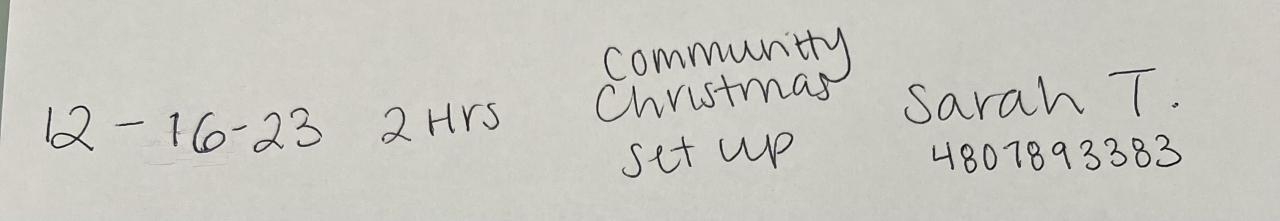 12-16-23 2 Hrs Community Christmas set up Sarah T.
4807893383